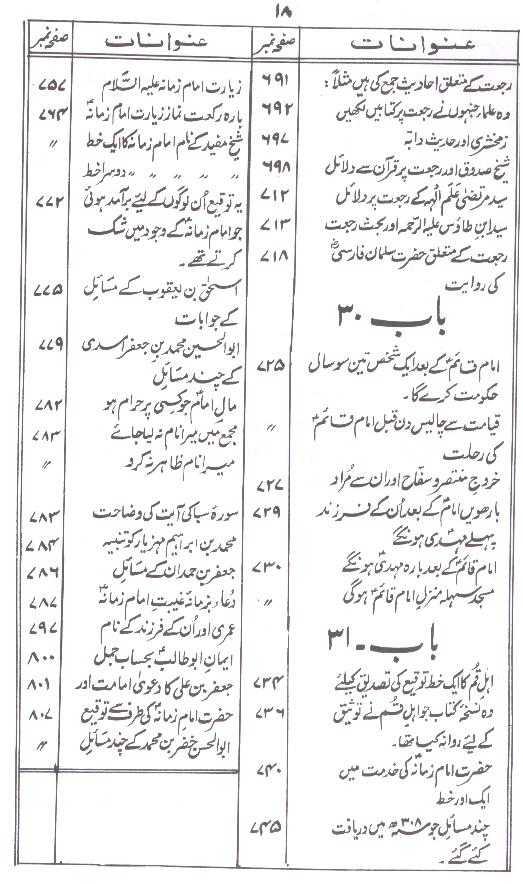 ۱۸
عنوانات صفحہ نمبر
رجعت کے متعلق احادیث جمع کی ہیں مثلاً: ۶۹۱
وہ علماء جنہوں نے رجعت پر کتابیں لکھیں ۶۹۲
زمخشری اور حدیث دابّہ ۶۹۷
شیخ صدوق اور رجعت پر قرآن سے دلائل ۶۹۸
سید مرتضیٰ عَلَم الہُدیٰ کے رجعت پر دلائل ۷۱۲
سید ابنِ طاؤس علیہ الرحمہ اور بحث رجعت ۷۱۳
رجعت کے متعلق حضرت سلمان فارسیؓ ۷۱۸
کی روایت
باب ۳۰
امام قائمؑ کے بعد ایک شخص تین سو سال ۷۲۵
حکومت کرے گا۔
قیامت سے چالیس دن قبل امام قائمؑ 〃
کی رحلت
خروج منتصر و سفّاح اور ان سے مُراد ۷۲۷
بارھویں امامؑ کے بعد اُن کے فرزند ۷۲۹
پہلے مہدیؑ ہونگے
امام قائمؑ کے بعد بارہ مہدیؑ ہونگے ۷۳۰
مسجد سہلہ منزلِ امام قائمؑ ہوگی 〃
باب ۔ ۳۱
اہلِ قُم کا ایک خط توقیع کی تصدیق کیلئے ۷۳۴
وہ نسخۂ کتاب جو اہلِ قُم نے توثیق ۷۳۶
کے لیئے روانہ کیا تھا۔
حضرت امام زمانہؑ کی خدمت میں ۷۴۰
ایک اور خط
چند مسائل جو سنہ ۳۰۸ھ میں دریافت ۷۴۵
کئے گئے۔
عنوانات صفحہ نمبر
زیارت امام زمانہ علیہ السّلام ۷۵۷
بارہ رکعت نماز زیارت امام زمانہؑ ۷۶۴
شیخ مفید کے نام امام زمانہؑ کا ایک خط 〃
〃 〃 〃 〃 〃 دوسرا خط 〃
یہ توقیع اُن لوگوں کے لیئے برآمد ہوئی ۷۷۲
جو امام زمانہؑ کے وجود میں شک
کرتے تھے۔
اسحٰق بن یعقوب کے مسائل ۷۷۵
کے جوابات
ابوالحسین محمد بن جعفر اسدی ۷۷۹
کے چند مسائل
مالِ امامؑ جو کسی پر حرام ہو ۷۸۲
مجمع میں میرا نام نہ لیا جائے ۷۸۳
میرا نام ظاہر نہ کرو 〃
سورۂ سبا کی آیت کی وضاحت ۷۸۳
محمد بن ابراہیم مہزیار کو تنبیہ ۷۸۴
جعفر بن حمدان کے مسائل ۷۸۶
دُعاء بزمانۂ غیبتِ امام زمانہؑ ۷۸۷
عمری اور اُن کے فرزند کے نام ۷۹۷
ایمانِ ابوطالبؑ بحساب جمل ۸۰۰
جعفر بن علی کا دعویٰ امامت اور ۸۰۱
حضرت امام زمانہؑ کی طرف سے توقیع ۸۰۷
ابوالحسن خضر بن محمد کے چند مسائل 〃